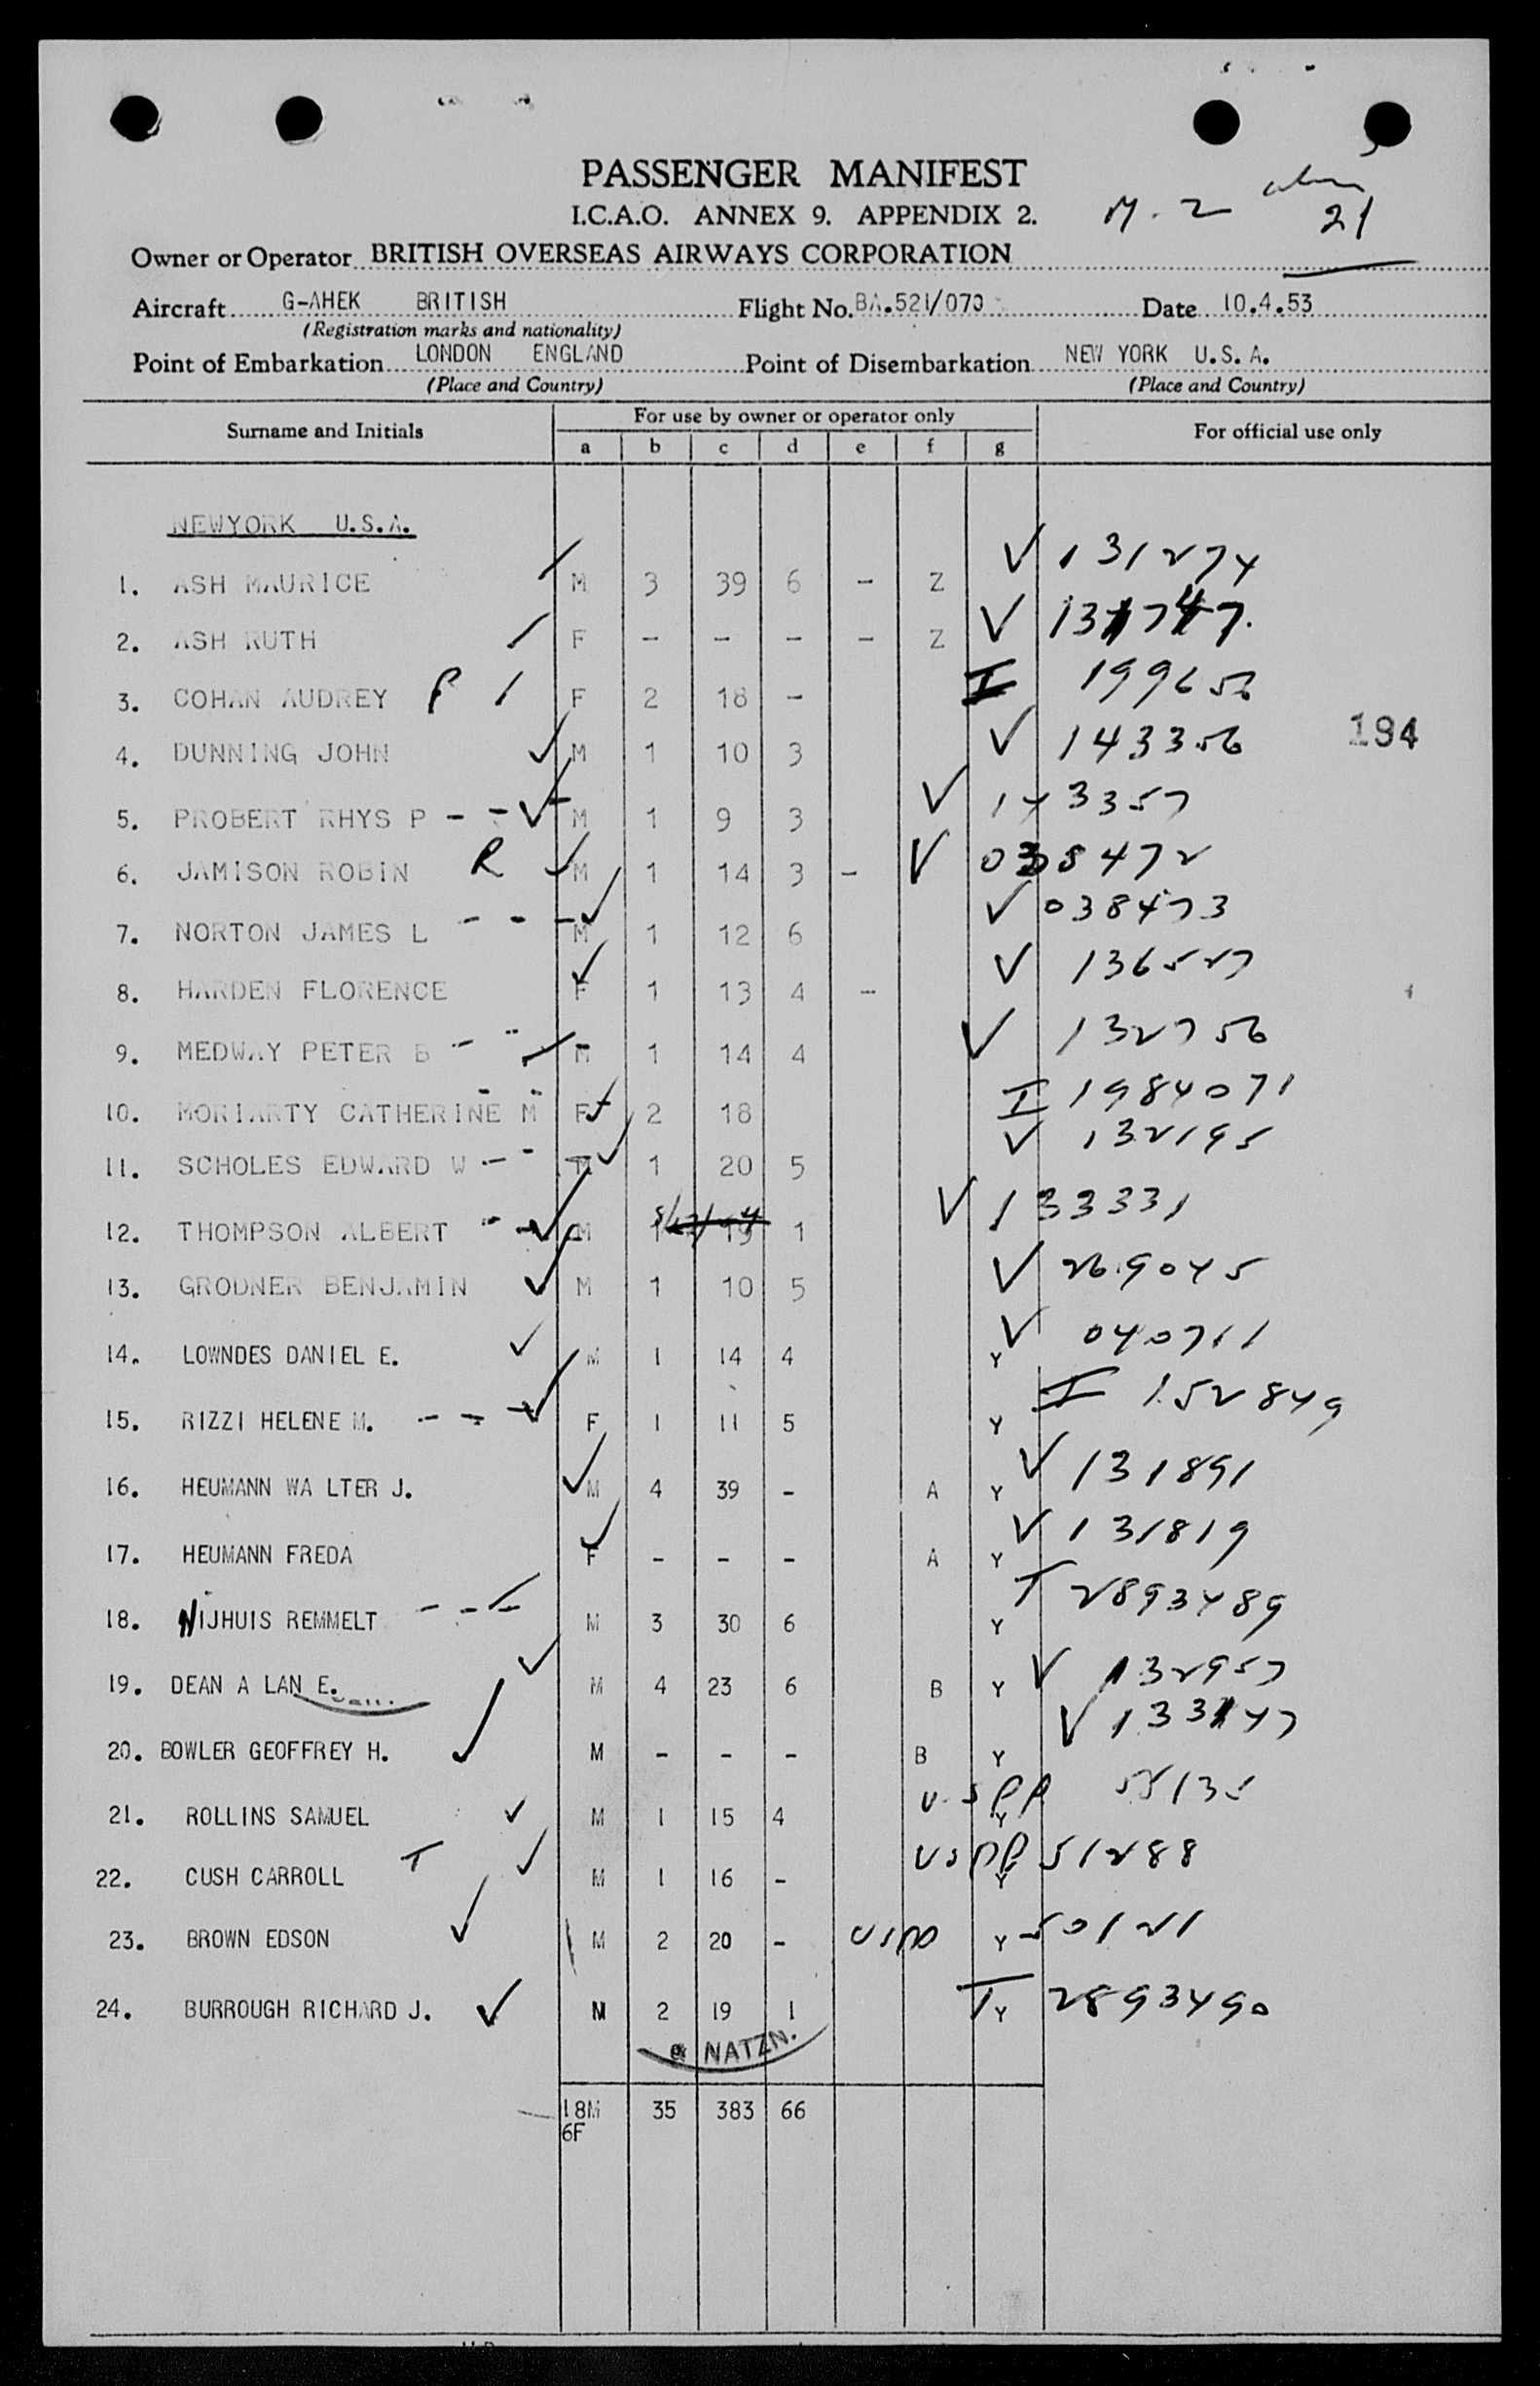 PASSENGER MANIFEST
I.C.A.O. ANNEX 9. APPENDIX 2.
M. 2 21
Owner or Operator BRITISH OVERSEAS AIRWAYS CORPORATION
Aircraft G-AHEK BRITISH Flight No. BA.521/070 Date 10.4.53
(Registration marks and nationality)
Point of Embarkation LONDON ENGLAND Point of Disembarkation NEW YORK U.S.A.
(Place and Country) (Place and Country)
Surname and Initials For use by owner or operator only For official use only
a b c d e f g
NEWYORK U.S.A.
1. ASH MAURICE M 3 39 6 - Z V 131274
2. ASH RUTH F - - - - Z V 131747.
3. COHAN AUDREY F 2 18 - I 199656
4. DUNNING JOHN M 1 10 3 V 143356 194
5. PROBERT RHYS P - - M 1 9 3 V 143357
6. JAMISON ROBIN R M 1 14 3 - V 038472
7. NORTON JAMES L - - - M 1 12 6 V 038473
8. HARDEN FLORENCE F 1 13 4 - V 136527
9. MEDWAY PETER B - M 1 14 4 V 132756
10. MORIARTY CATHERINE M F 2 18 I 1984071
11. SCHOLES EDWARD W - - M 1 20 5 V 132195
12. THOMPSON ALBERT - - M 1 19 1 V 133331
13. GRODNER BENJAMIN M 1 10 5 V 269045
14. LOWNDES DANIEL E. M 1 14 4 Y V 040711
15. RIZZI HELENE M. - - - F 1 11 5 Y I 152849
16. HEUMANN WA LTER J. M 4 39 - A Y V 131891
17. HEUMANN FREDA F - - - A Y V 131819
18. NIJHUIS REMMELT - - - M 3 30 6 Y T 2893489
19. DEAN A LAN E. M 4 23 6 B Y V 132957
20. BOWLER GEOFFREY H. M - - - B Y V 133147
21. ROLLINS SAMUEL M 1 15 4 Y USPP 55135
22. CUSH CARROLL T M 1 16 - Y USPP 51288
23. BROWN EDSON M 2 20 - Y 50121
24. BURROUGH RICHARD J. M 2 19 1 T Y 2893490
NATZN.
18M 35 383 66
6F